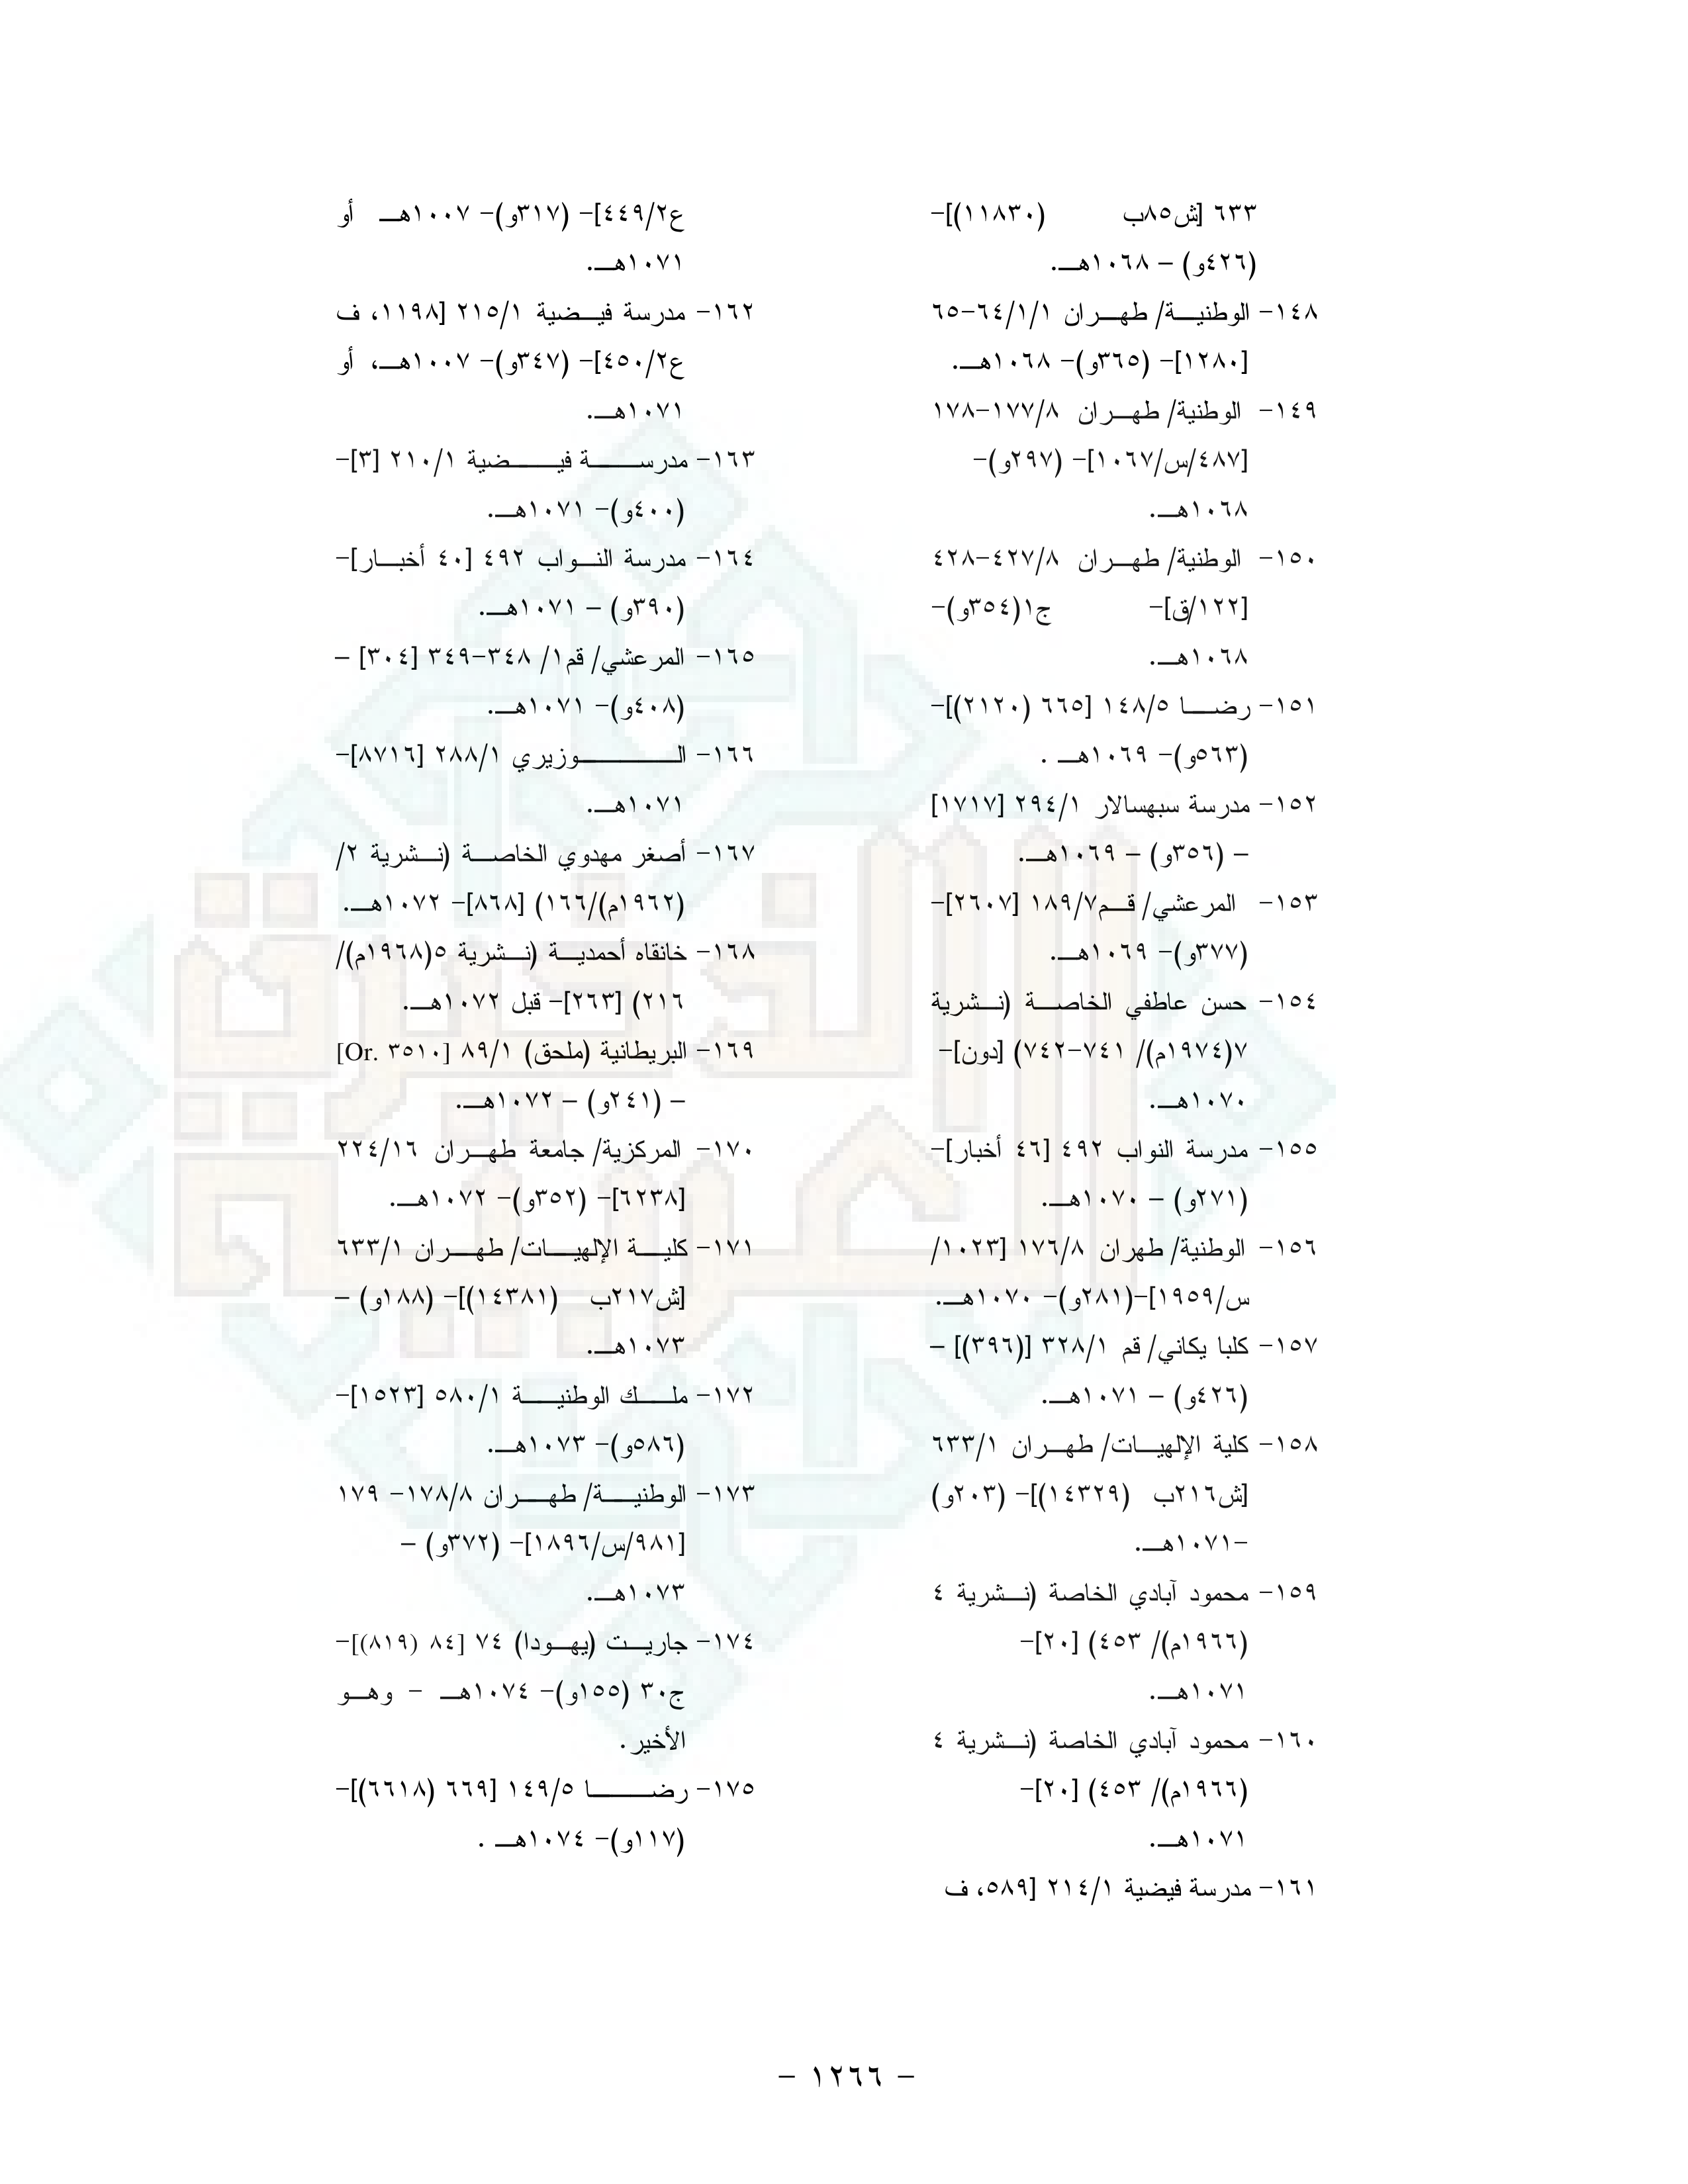 ٦٣٣ [ش٨٥ب (١١٨٣٠)]-
(٤٢٦و) – ١٠٦٨هـ.
١٤٨- الوطنية/ طهران ٦٤/١/١-٦٥
[١٢٨٠]- (٣٦٥و)- ١٠٦٨هـ.
١٤٩- الوطنية/ طهران ١٧٧/٨-١٧٨
[٤٨٧/س/١٠٦٧]- (٢٩٧و)-
١٠٦٨هـ.
١٥٠- الوطنية/ طهران ٤٢٧/٨-٤٢٨
[١٢٢/ق]- ج١(٣٥٤و)-
١٠٦٨هـ.
١٥١- رضا ١٤٨/٥ [٦٦٥ (٢١٢٠)]-
(٥٦٣و)- ١٠٦٩هـ .
١٥٢- مدرسة سبهسالار ٢٩٤/١ [١٧١٧]
– (٣٥٦و) – ١٠٦٩هـ.
١٥٣- المرعشي/ قم١٨٩/٧ [٢٦٠٧]-
(٣٧٧و)- ١٠٦٩هـ.
١٥٤- حسن عاطفي الخاصة (نشرية
٧(١٩٧٤م)/ ٧٤١-٧٤٢) [دون]-
١٠٧٠هـ.
١٥٥- مدرسة النواب ٤٩٢ [٤٦ أخبار]-
(٢٧١و) – ١٠٧٠هـ.
١٥٦- الوطنية/ طهران ١٧٦/٨ [١٠٢٣/
س/١٩٥٩]-(٢٨١و)- ١٠٧٠هـ.
١٥٧- كلبا يكاني/ قم ٣٢٨/١ [(٣٩٦)] –
(٤٢٦و) – ١٠٧١هـ.
١٥٨- كلية الإلهيات/ طهران ٦٣٣/١
[ش٢١٦ب (١٤٣٢٩)]- (٢٠٣و)
-١٠٧١هـ.
١٥٩- محمود آبادي الخاصة (نشرية ٤
(١٩٦٦م)/ ٤٥٣) [٢٠]-
١٠٧١هـ.
١٦٠- محمود آبادي الخاصة (نشرية ٤
(١٩٦٦م)/ ٤٥٣) [٢٠]-
١٠٧١هـ.
١٦١- مدرسة فيضية ٢١٤/١ [٥٨٩، ف
ع٤٤٩/٢]- (٣١٧و)- ١٠٠٧هـ أو
١٠٧١هـ.
١٦٢- مدرسة فيضية ٢١٥/١ [١١٩٨، ف
ع٤٥٠/٢]- (٣٤٧و)- ١٠٠٧هـ، أو
١٠٧١هـ.
١٦٣- مدرسة فيضية ٢١٠/١ [٣]-
(٤٠٠و)- ١٠٧١هـ.
١٦٤- مدرسة النواب ٤٩٢ [٤٠ أخبار]-
(٣٩٠و) – ١٠٧١هـ.
١٦٥- المرعشي/ قم١/ ٣٤٨-٣٤٩ [٣٠٤] –
(٤٠٨و)- ١٠٧١هـ.
١٦٦- الوزيري ٢٨٨/١ [٨٧١٦]-
١٠٧١هـ.
١٦٧- أصغر مهدوي الخاصة (نشرية ٢/
(١٩٦٢م)/١٦٦) [٨٦٨]- ١٠٧٢هـ.
١٦٨- خانقاه أحمدية (نشرية ٥(١٩٦٨م)/
٢١٦) [٢٦٣]- قبل ١٠٧٢هـ.
١٦٩- البريطانية (ملحق) ٨٩/١ [Or. ٣٥١٠]
– (٢٤١و) – ١٠٧٢هـ.
١٧٠- المركزية/ جامعة طهران ٢٢٤/١٦
[٦٢٣٨]- (٣٥٢و)- ١٠٧٢هـ.
١٧١- كلية الإلهيات/ طهران ٦٣٣/١
[ش٢١٧ب (١٤٣٨١)]- (١٨٨و) –
١٠٧٣هـ.
١٧٢- ملك الوطنية ٥٨٠/١ [١٥٢٣]-
(٥٨٦و)- ١٠٧٣هـ.
١٧٣- الوطنية/ طهران ١٧٨/٨- ١٧٩
[٩٨١/س/١٨٩٦]- (٣٧٢و) –
١٠٧٣هـ.
١٧٤- جاريت (يهودا) ٧٤ [٨٤ (٨١٩)]-
ج٣٠ (١٥٥و)- ١٠٧٤هـ - وهو
الأخير.
١٧٥- رضا ١٤٩/٥ [٦٦٩ (٦٦١٨)]-
(١١٧و)- ١٠٧٤هـ .
- ١٢٦٦ -